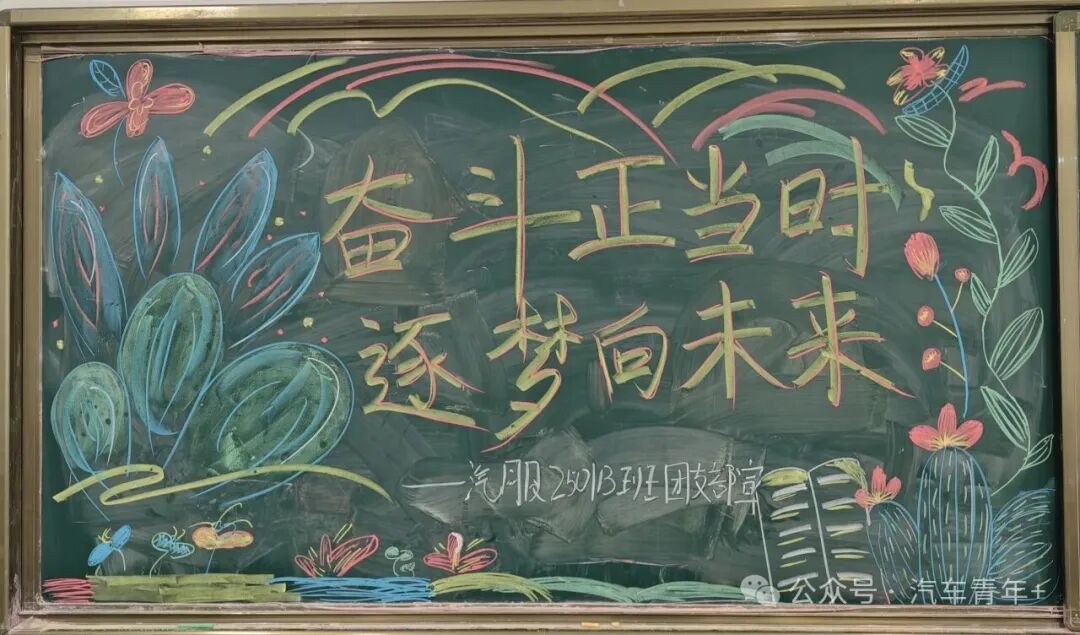 奋斗正当时
逐梦向未来
—汽服25013班团支部宣
公众号·汽车青年+